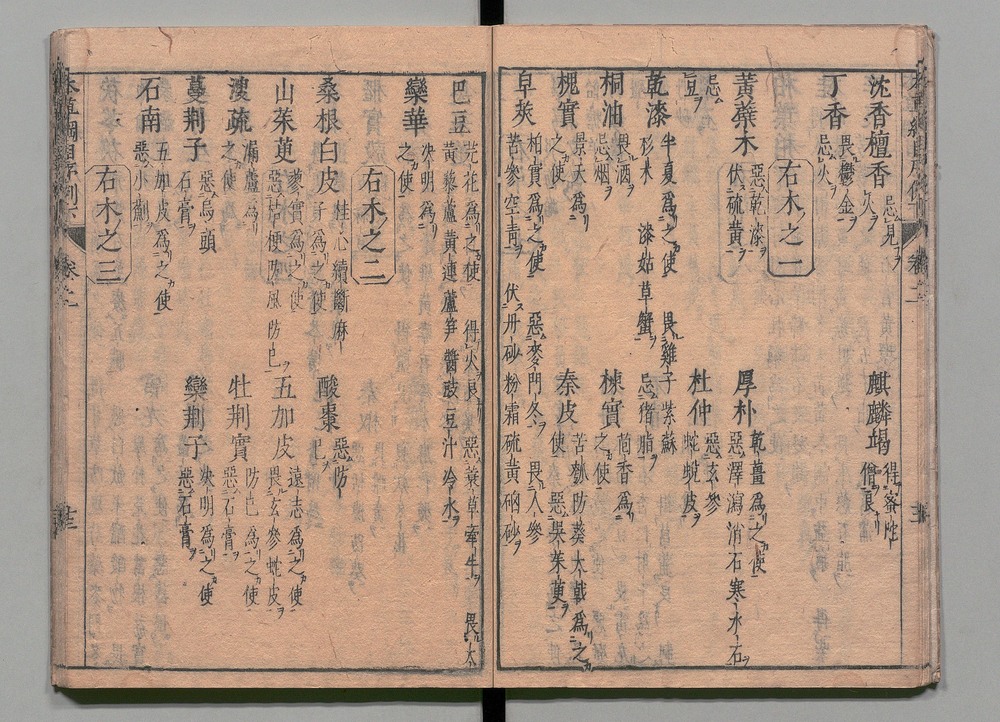 沈香檀香 忌見火 麒麟竭 得密陀僧良
丁香 畏鬱金 忌火
右木之一
黃蘗木 惡乾漆 伏硫黃 厚朴 乾薑爲之使 惡澤瀉消石寒水石
忌豆 杜仲 惡玄參蛇蛻皮
乾漆 半夏爲之使 畏雞子紫蘇杉木漆姑草蟹 忌猪脂
桐油 畏酒 忌烟 楝實 茴香爲之使
槐實 景天爲之使 秦皮 苦瓠防葵大戟爲之使 惡吳茱萸
皁莢 柏實爲之使 惡麥門冬 畏人參苦參空青 伏丹砂粉霜硫黃硇砂
巴豆 芫花爲之使 得火良 惡蘘草牽牛 畏大黃藜蘆黃連蘆笋醬豉豆汁冷水
欒華 決明爲之使
右木之二
桑根白皮 桂心續斷麻子爲之使 酸棗 惡防己
山茱萸 蓼實爲之使 惡桔梗防風防己 五加皮 遠志爲之使 畏玄參蛇皮
溲疏 漏蘆爲之使 牡荆實 防己爲之使 惡石膏
蔓荆子 惡烏頭石膏 欒荆子 決明爲之使 惡石膏
石南 五加皮爲之使 惡小薊
右木之三
本草綱目序例下 卷之二 廿三